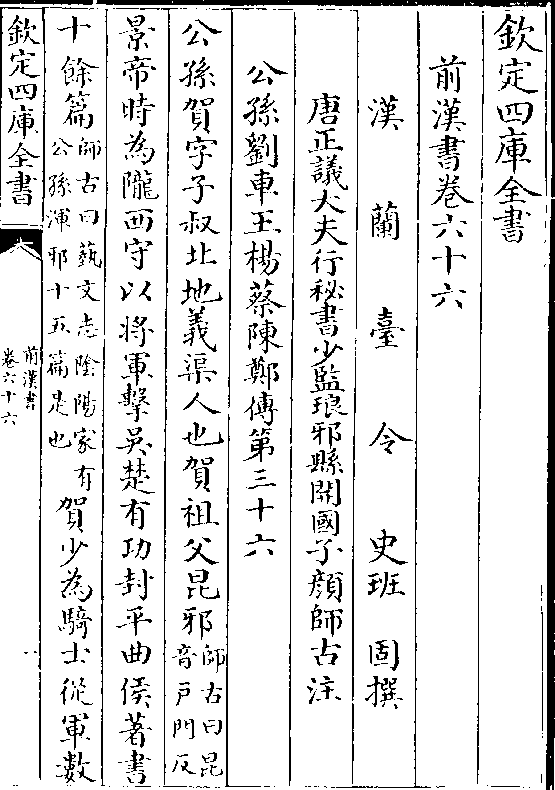 欽定四庫全書
前漢書卷六十六
漢蘭臺令史班固撰
唐正議大夫行秘書少監琅邪縣開國子顔師古注
公孫劉車王楊蔡陳鄭傳第三十六
公孫賀字子叔北地義渠人也賀祖父昆邪師古曰昆音户門反
景帝時為隴西守以將軍擊吳楚有功封平曲侯著書
十餘篇師古曰藝文志陰陽家有公孫渾邪十五篇是也賀少為騎士從軍數
欽定四庫全書
前漢書
卷六十六
一